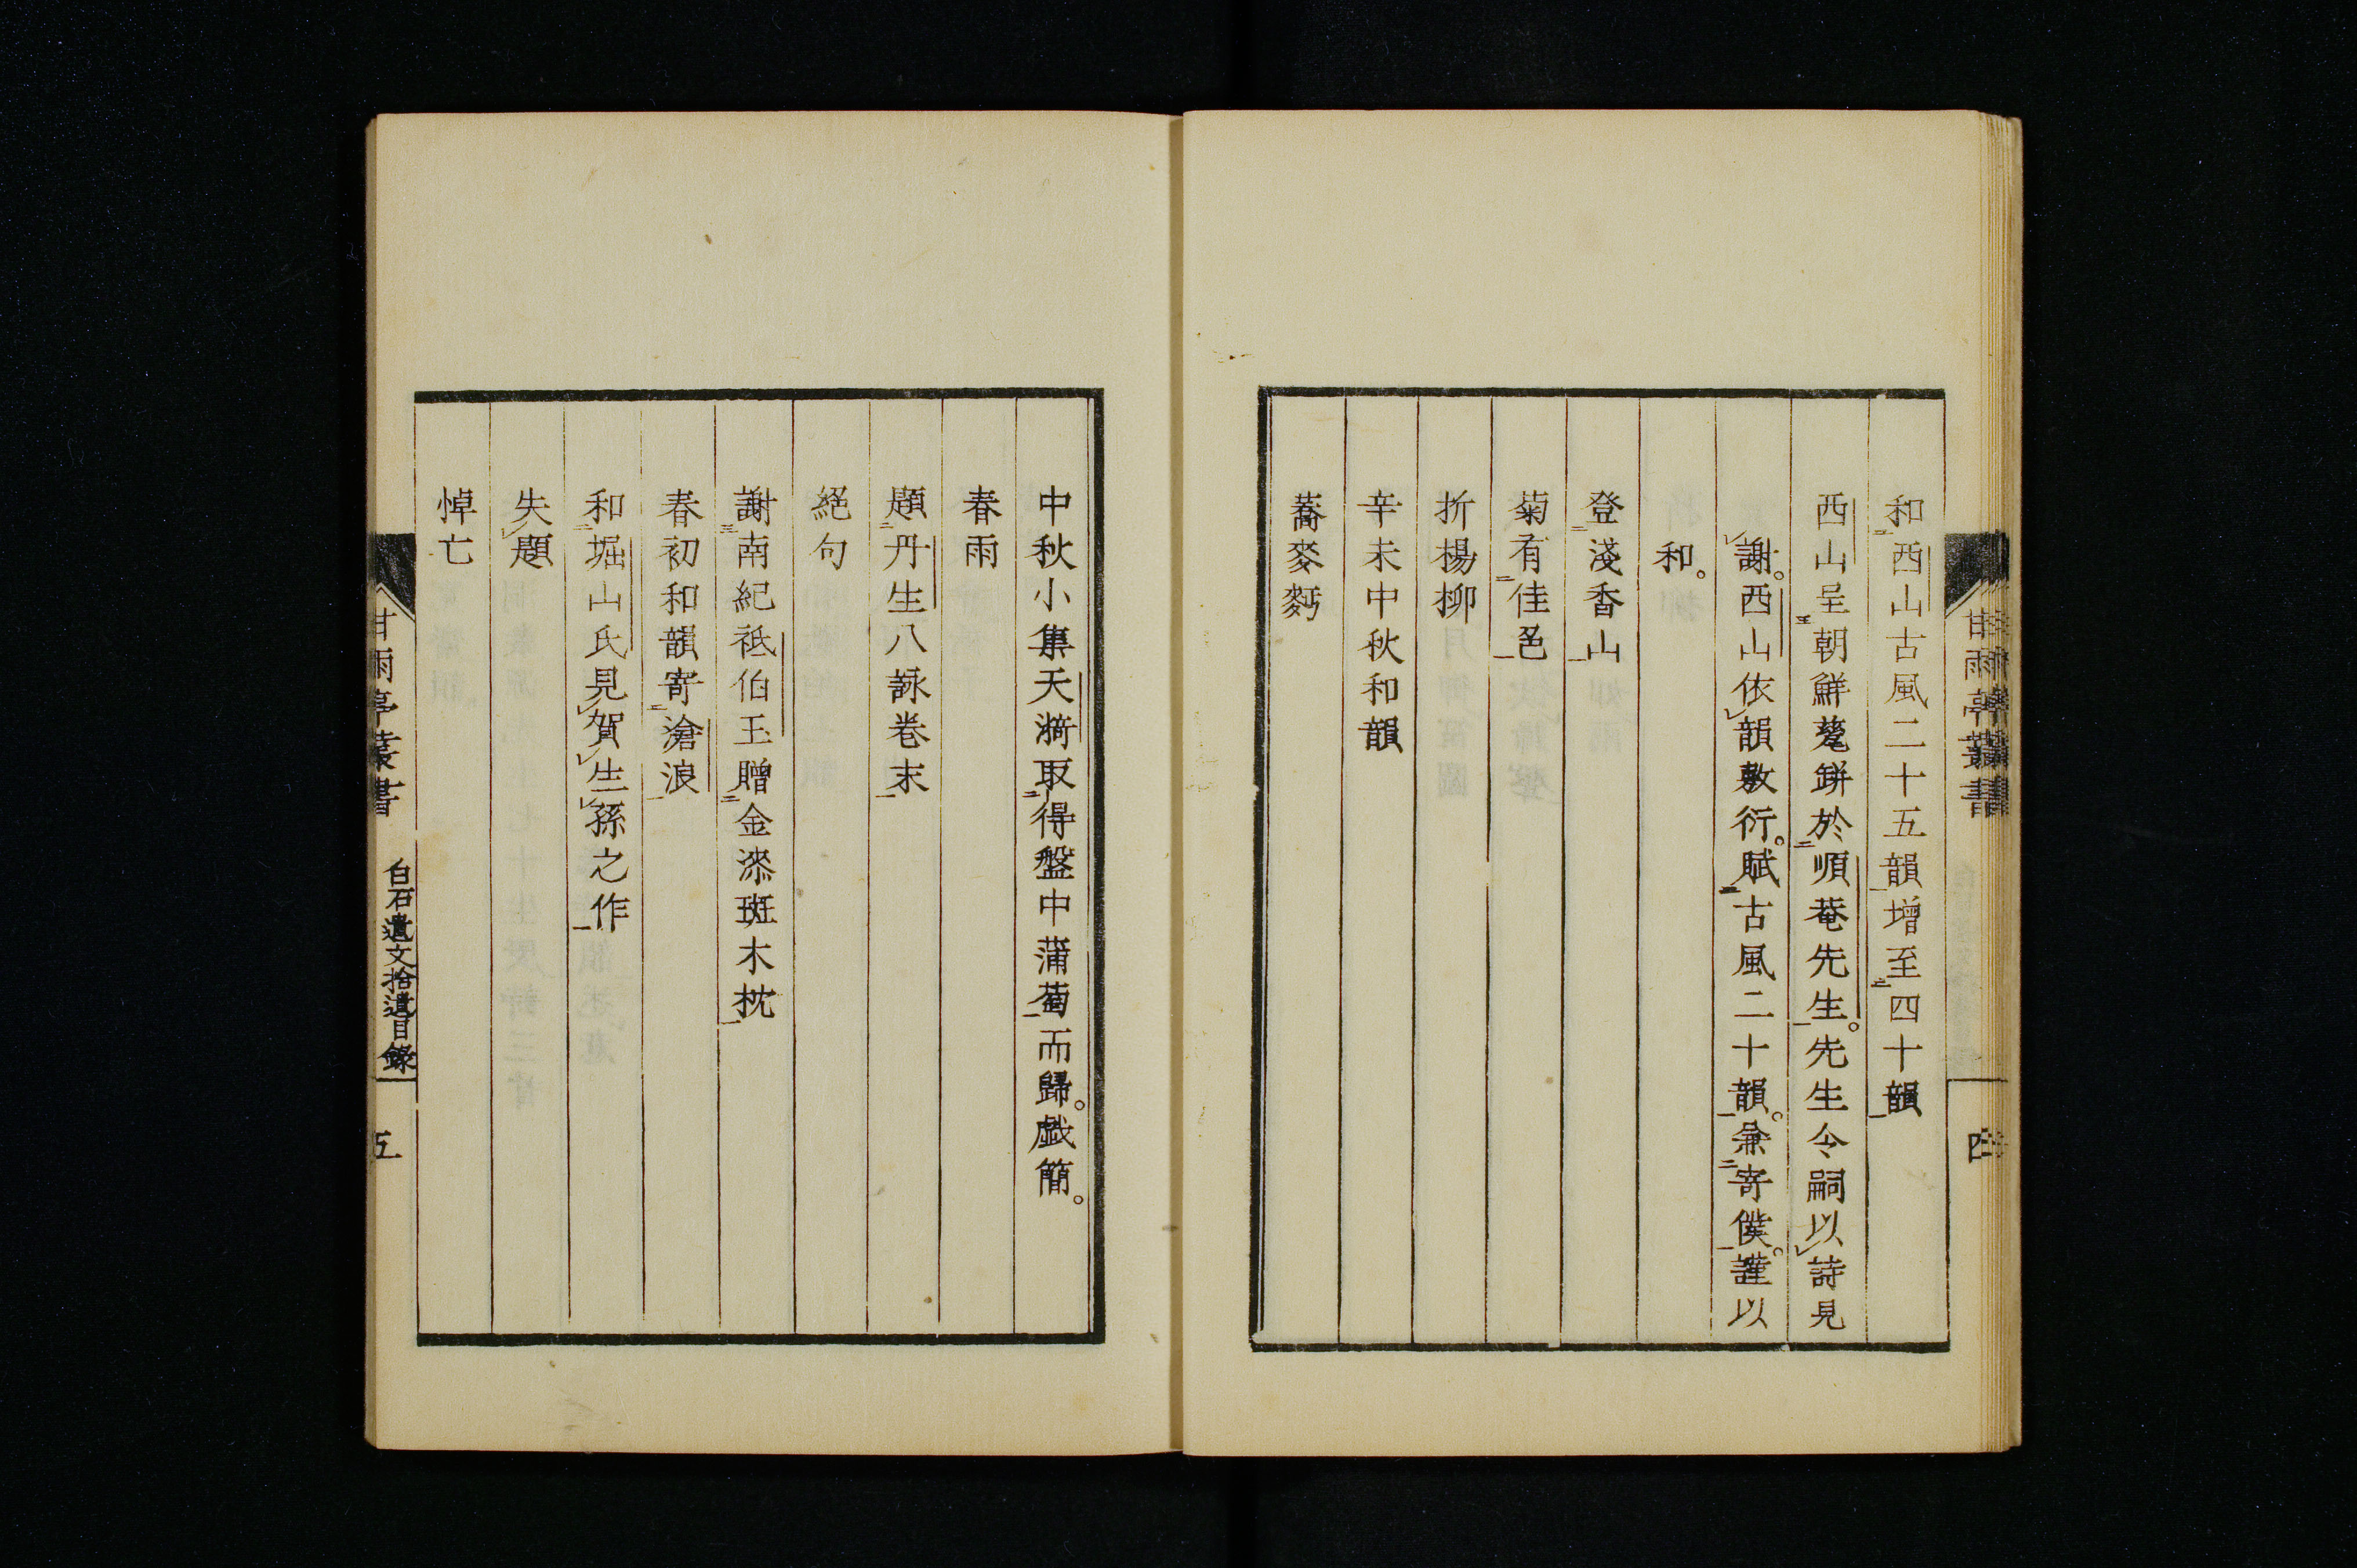 和西山古風二十五韻增至四十韻
西山呈朝鮮甆缾於順菴先生。先生令嗣以詩見
謝。西山依韻敷衍。賦古風二十韻。兼寄僕。謹以
和。
登淺香山
菊有佳色
折楊柳
辛未中秋和韻
蕎麥麪
甘雨亭叢書
四
中秋小集天漪取得盤中蒲萄而歸。戯簡。
春雨
題丹生八詠卷末
絕句
謝南紀祗伯玉贈金漆斑木枕
春初和韻寄滄浪
和堀山氏見賀生孫之作
失題
悼亡
甘雨亭叢書
白石遺文拾遺目錄
五